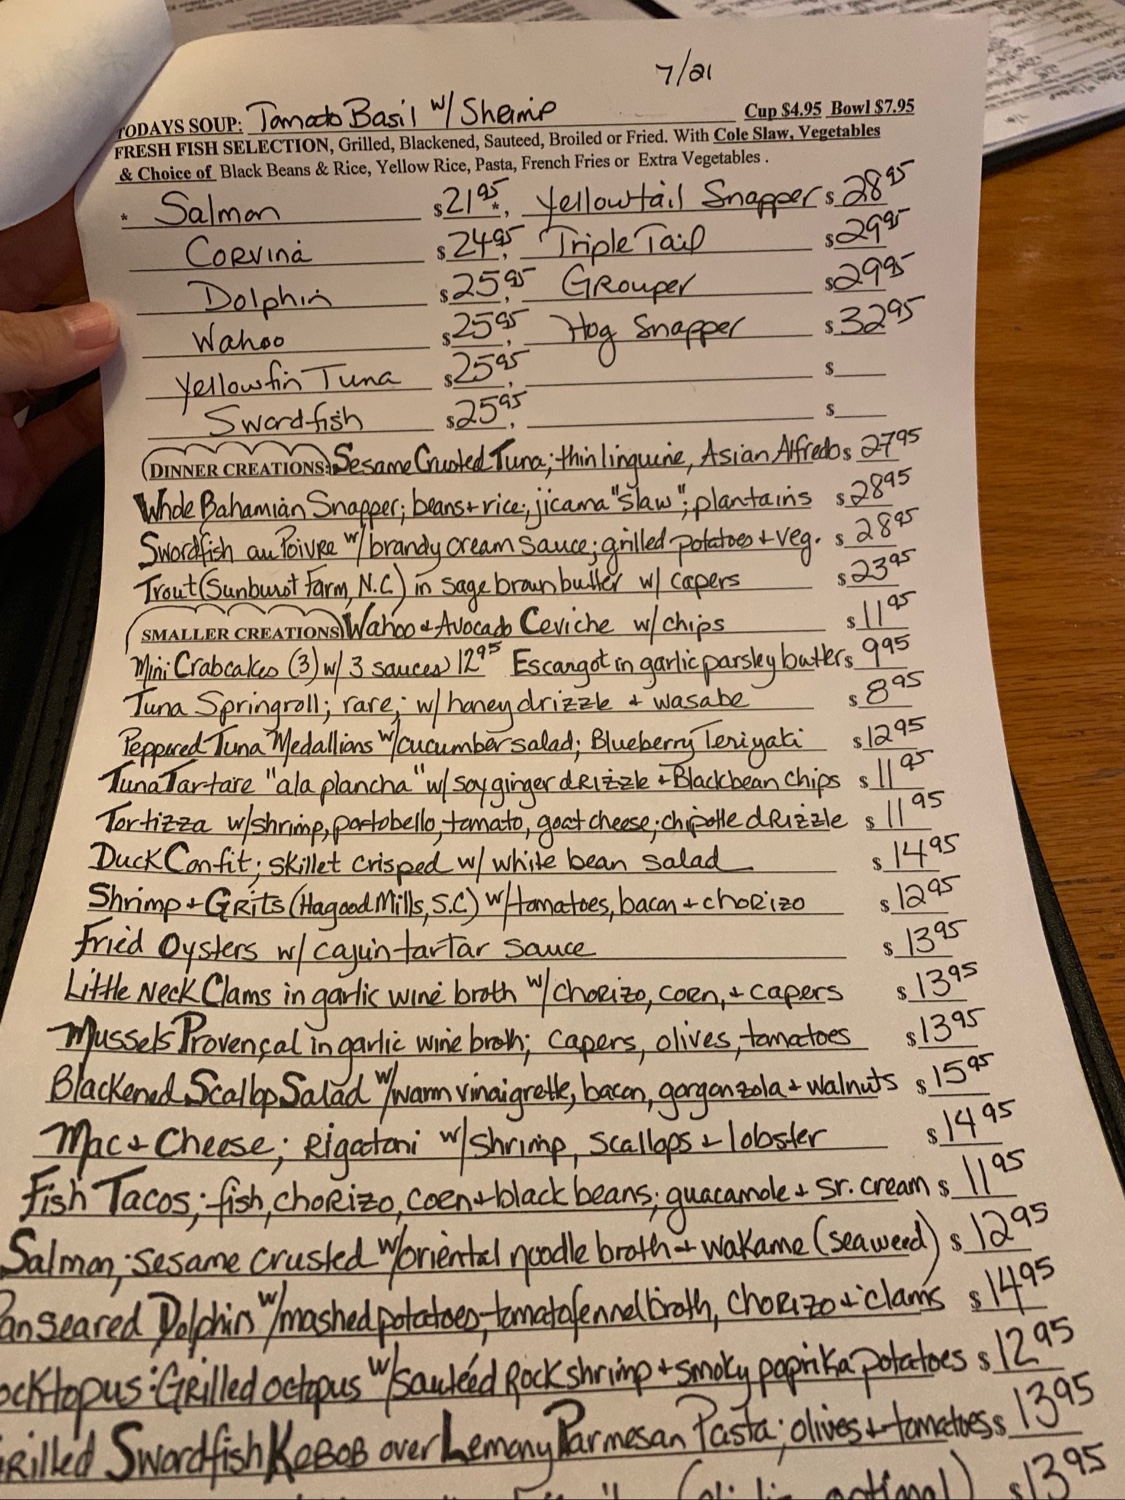 7/21
TODAYS SOUP: Tomato Basil w/ Shrimp Cup $4.95 Bowl $7.95
FRESH FISH SELECTION, Grilled, Blackened, Sauteed, Broiled or Fried. With Cole Slaw, Vegetables
& Choice of Black Beans & Rice, Yellow Rice, Pasta, French Fries or Extra Vegetables .
* Salmon $21 95 *, Yellowtail Snapper $28 95
Corvina $24 95, Triple Tail $29 95
Dolphin $25 95, Grouper $29 95
Wahoo $25 95, Hog Snapper $32 95
Yellowfin Tuna $25 95, $
Swordfish $25 95, $
DINNER CREATIONS: Sesame Crusted Tuna; thin linguine, Asian Alfredo $27 95
Whole Bahamian Snapper; beans + rice; jicama "slaw"; plantains $28 95
Swordfish au Poivre w/ brandy cream sauce; grilled potatoes + veg. $28 95
Trout (Sunburst Farm, N.C.) in sage brown butter w/ capers $23 95
SMALLER CREATIONS Wahoo + Avocado Ceviche w/ chips $11 95
Mini Crabcakes (3) w/ 3 sauces 12 95 Escargot in garlic parsley butter $9 95
Tuna Springroll; rare; w/ honey drizzle + wasabe $8 95
Peppered Tuna Medallions w/ cucumber salad; Blueberry Teriyaki $12 95
Tuna Tartare "ala plancha" w/ soy ginger drizzle + Blackbean chips $11 95
Tortizza w/ shrimp, portobello, tomato, goat cheese; chipotle drizzle $11 95
Duck Confit; skillet crisped w/ white bean salad $14 95
Shrimp + Grits (Hagood Mills, S.C.) w/ tomatoes, bacon + chorizo $12 95
Fried Oysters w/ cajun tartar sauce $13 95
Little Neck Clams in garlic wine broth w/ chorizo, corn, + capers $13 95
Mussels Provençal in garlic wine broth; capers, olives, tomatoes $13 95
Blackened Scallop Salad w/ warm vinaigrette, bacon, gorgonzola + walnuts $15 95
Mac + Cheese; Rigatoni w/ shrimp, scallops + lobster $14 95
Fish Tacos; fish, chorizo, corn + black beans; guacamole + sr. cream $11 95
Salmon; sesame crusted w/ oriental noodle broth + wakame (seaweed) $12 95
anseared Dolphin w/ mashed potatoes, tomato fennel broth, chorizo + clams $14 95
ocktopus: Grilled octopus w/ sauteéd Rock shrimp + smoky paprika potatoes $12 95
rilled Swordfish Kebob over Lemony Parmesan Pasta; olives + tomatoes $13 95
optional) $13 95